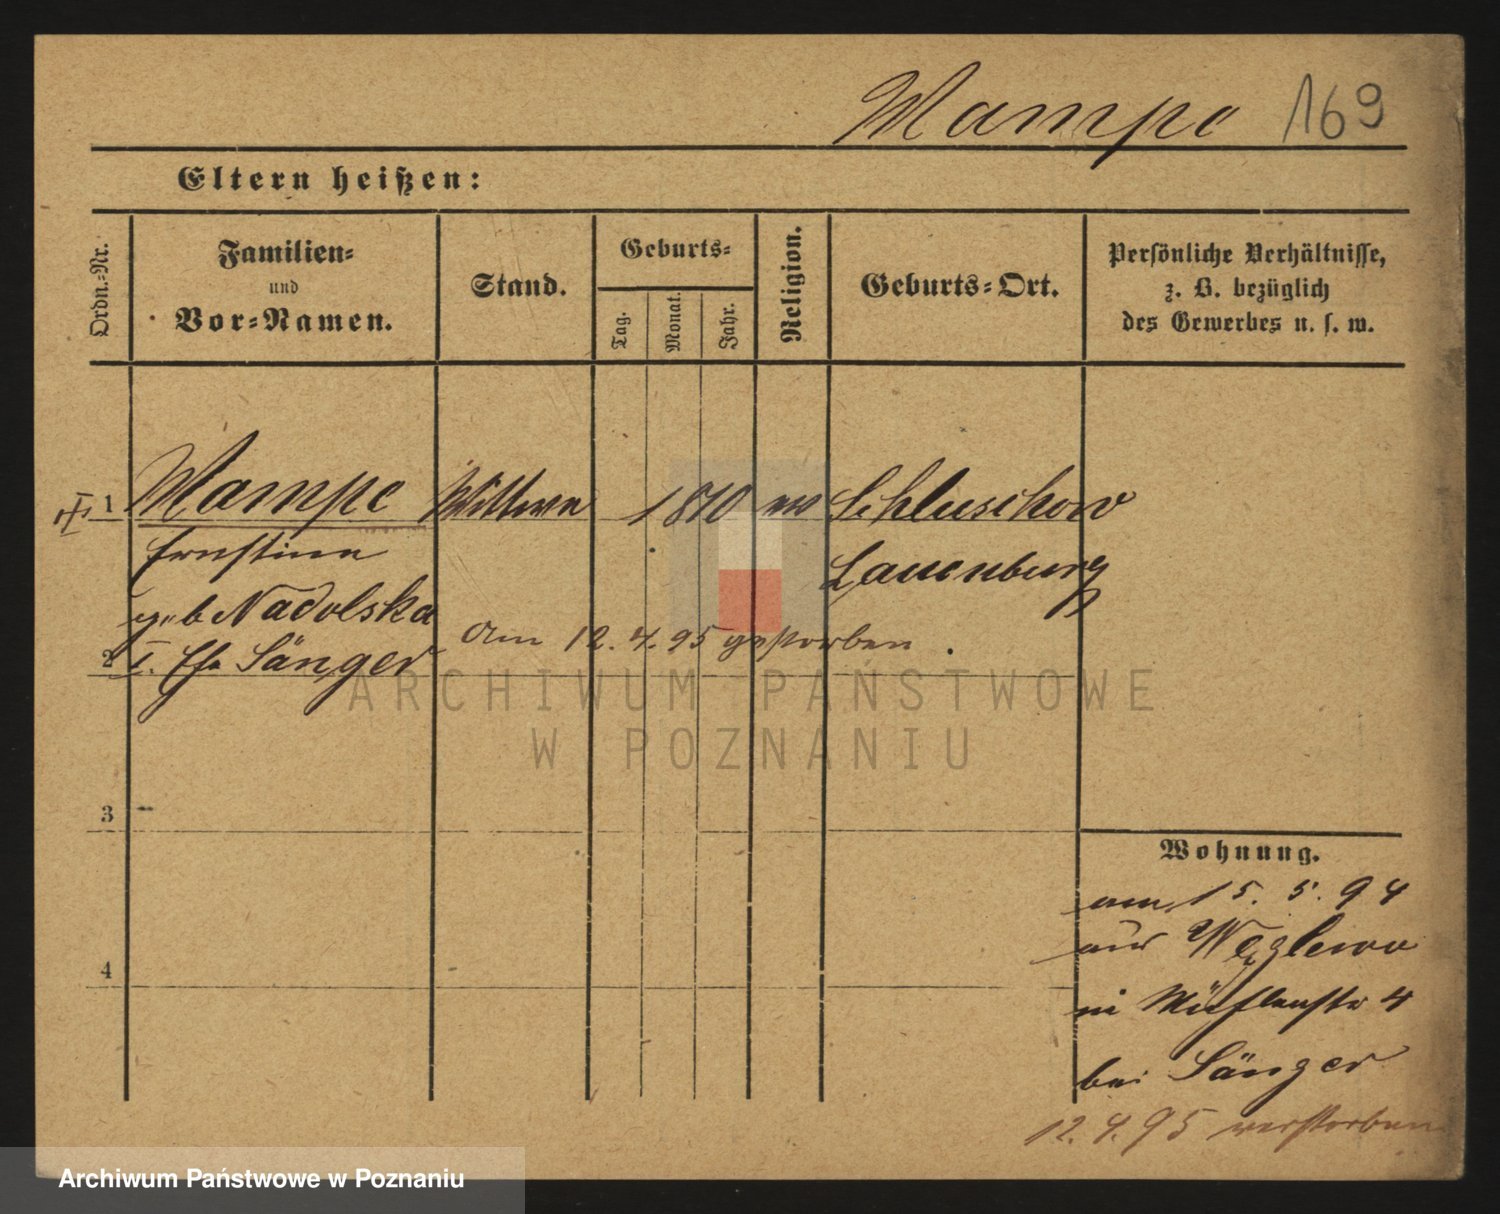 Mampe 169
Eltern heißen:
Ordn.-Nr.
Familien-
und
Vor-Namen.
Stand.
Geburts-
Tag.
Monat.
Jahr.
Religion.
Geburts-Ort.
Persönliche Verhältnisse,
z. B. bezüglich
des Gewerbes u. s. w.
1 Mampe Wittwe 1810 ev Schluschow
Ernstine Lauenburg
geb Nadolska
2 I. Ehe Sänger am 12. 4. 95 gestorben.
ARCHIWUM PAŃSTWOWE
W POZNANIU
3
4
Wohnung.
am 15. 5. 94
aus Węglewo
in Mühlenstr 4
bei Sänger
12. 4. 95 verstorben
Archiwum Państwowe w Poznaniu